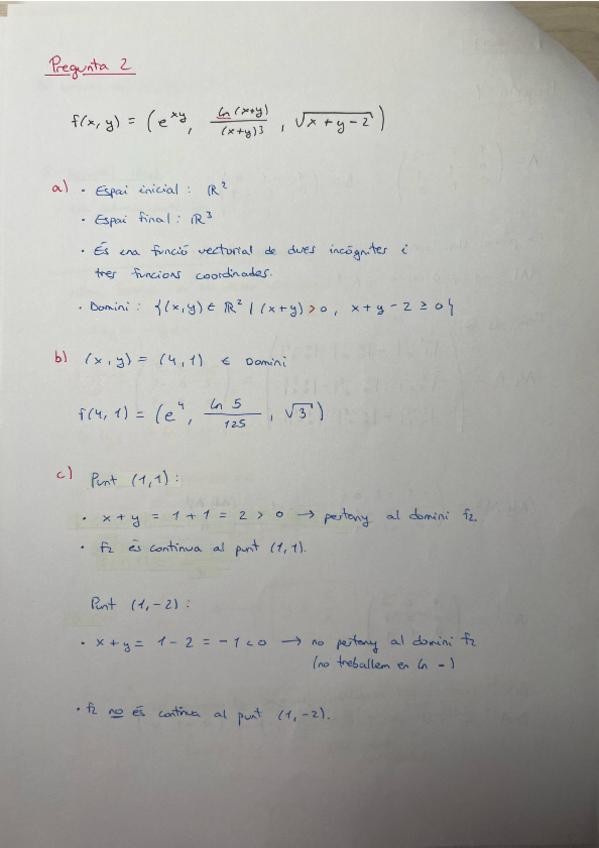 Pregunta 2
f(x, y) = (e^xy, ln(x+y)/(x+y)3, √x+y-2)
a) • Espai inicial: ℝ²
• Espai final: ℝ³
• És una funció vectorial de dues incògnites i
tres funcions coordinades.
• Domini: {(x,y) ∈ ℝ² | (x+y) > 0, x+y-2 ≥ 0}
b) (x, y) = (4, 1) ∈ Domini
f(4, 1) = (e⁴, ln 5/125, √3)
c) Punt (1,1):
• x+y = 1+1 = 2 > 0 → pertany al domini f2.
• f2 és contínua al punt (1,1).
Punt (1,-2):
• x+y = 1-2 = -1 < 0 → no pertany al domini f2
(no treballem en ln -)
• f2 no és contínua al punt (1,-2).